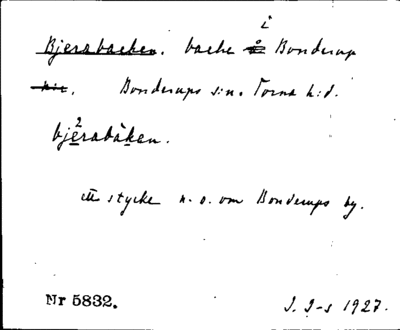 Bjersbacken. backe i Bonderup
Bonderups s:n. Torna h:d.
bjèrsbàken.
ett stycke n. o. om Bonderups by.
Nr 5832.
1927.